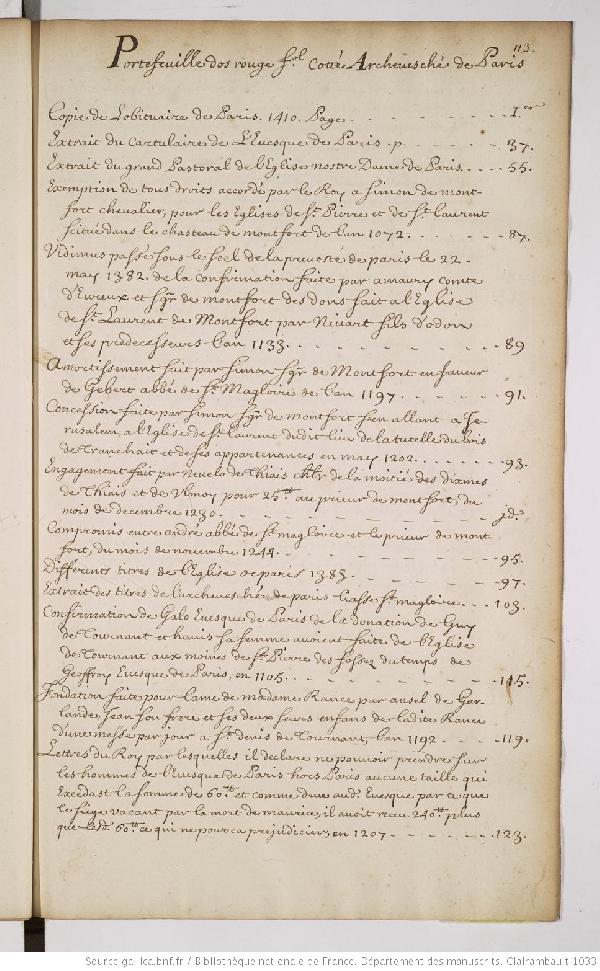 113.
Portefeuille dos rouge f.ol Cotté Archeuesché de Paris
Copie de Lobituaire de Paris. 1410. Page . . . . . . . . 1.er
Extrait du Cartulaire de L'Euesque de Paris . p. . . . . . 37.
Extrait du grand Pastoral de l'Eglise nostre Dame de Paris . . . . 55.
Exemption de tous droits accordé par le Roy a Simon de mont-
fort cheualier, pour les Eglises de St. Pierre et de St. Laurent
scituè dans le chasteau de montfort de l'an 1072. . . . . . . 87.
Vidimus passé sous le scel de la preuosté de paris le 22.
may 1382. de la Confirmation faite par amaury comte
d'Eureux et sgr. de montfort des dons fait a l'Eglise
de St. Laurent de Montfort par Niuart fils d'odon
et ses predecesseurs l'an 1133. . . . . . . . . 89
Amortissement fait par Simon sgr. de Montfort en faueur
de Gebert abbé de St. Magloire de l'an 1197 . . . . . 91.
Concession faite par Simon sgr. de montfort s'en allant a Je-
rusalem, a l'Eglise de St. laurent dudit lieu de la tutelle du bois
de Tranchait et de ses appartenances en may 1202. . . . . . . 93.
Engagement fait par Neuelo de Thiais chlr. de la moitié des dixmes
de Thiais et de pour 25tt au prieur de montfort, du
mois de decembre 1230. . . . . . . . . . jd.
Compromis entre andré abbé de St. magloire et le prieur de mont
fort, du mois de nouembre 1244. . . . . . . . . 95.
Differents titres de l'Eglise de paris 1383. . . . . . . 97.
Extrait des titres de l'archeuesché de paris liasse St. magloire . . . 103.
Confirmation de Galo Euesque de Paris de la donation de Guy
de Tournant et hauis sa femme auoient faite de l'Eglise
de Tournant aux moines de St. Pierre des fossez du temps de
Geoffroy Euesque de Paris, en 1105. . . . . . . . . 115.
Fondation faite pour lame de madame Rance par ansel de Gar-
lande, Jean son frere et ses deux soeurs enfans de ladite Rance
d'une messe par jour a St. denis de Tournant, l'an 1192 . . . . 119.
Lettres du Roy par lesquelles il declare ne pouuoir prendre sur
les hommes de l'Euesque de Paris hors Paris aucune taille qui
Excedast la somme de 60tt et comme deue aud. Euesque par ce que
le siege vacant par la mort de maurice, il auoit receu 240tt plus
que lesd. 60tt ce qui ne pourra prejudicier, en 1207. . . . . . 123.
Source gallica.bnf.fr / Bibliothèque nationale de France. Département des manuscrits. Clairambault 1033